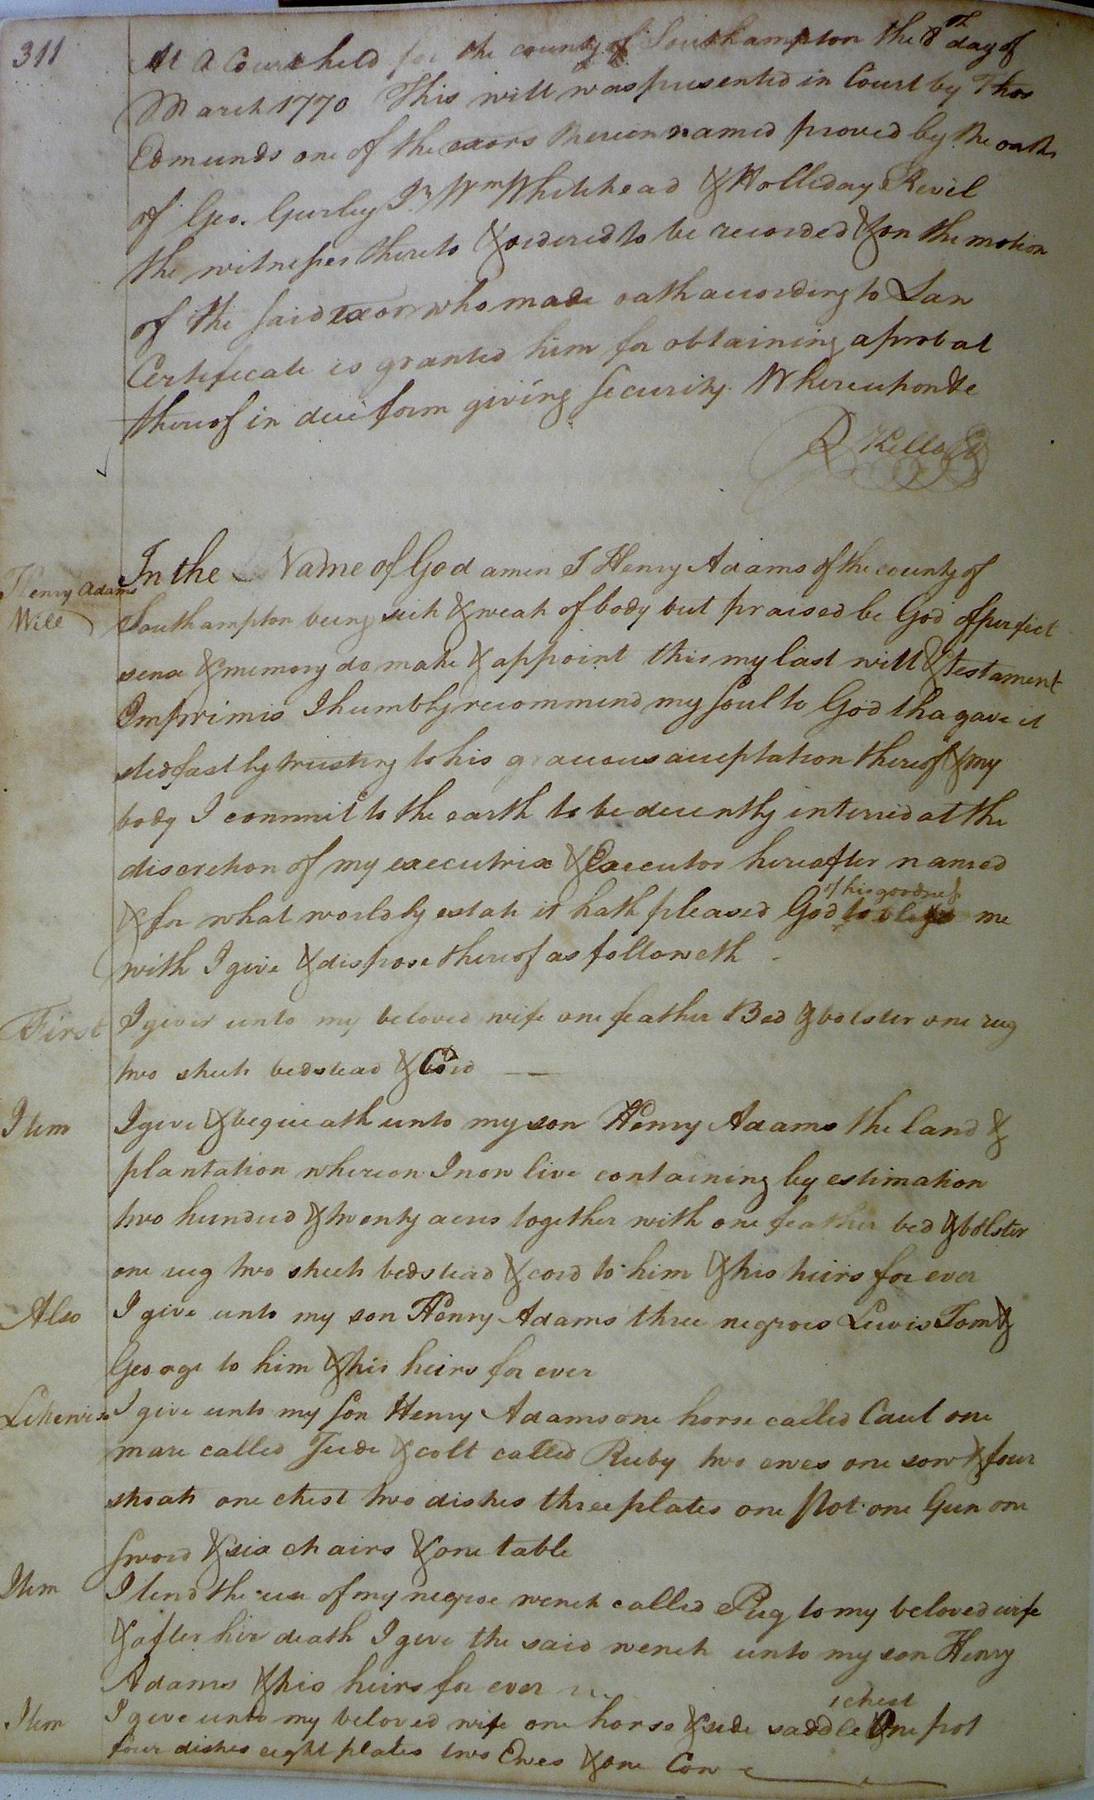 311
At A Court held for the county of Southampton the 8th day of
March 1770 This will was presented in Court by Thos
Edmunds one of the exors therein named proved by the oaths
of Geo. Gurley Jr Wm Whitehead & Holliday Revil
the witnesses thereto & ordered to be recorded & on the motion
of the said exor who made oath according to Law
Certificate is granted him for obtaining a probat
thereof in due form giving security. Whereupon &c
R Kello
Henry Adams
Will
In the Name of God amen I Henry Adams of the county of
Southampton being sick & weak of body but praised be God of perfect
sense & memory do make & appoint this my last will & testament
Imprimis I humbly recommend my soul to God tha gave it
stedfastly trusting to his gracious acceptation thereof & my
body I commit to the earth to be decently interred at the
discretion of my executrix & Executor hereafter named
of his goodness
& for what worldly estate it hath pleased God to bless me
with I give & dispose thereof as followeth -
First I give unto my beloved wife one feather Bed & bolster one rug
two sheets bedstead & Cord
Item I give & bequeath unto my son Henry Adams the land &
plantation whereon I now live containing by estimation
two hundred & twenty acres together with one feather bed & bolster
one rug two sheets bedstead & cord to him & his heirs for ever
Also I give unto my son Henry Adams three negroes Lewis Tom &
George to him & his heirs for ever
Likewise I give unto my son Henry Adams one horse called Caul one
mare called Jude & colt called Ruby two ewes one sow & four
shoats one chest two dishes three plates one Pot one Gun one
sword & six chairs & one table
Item I lend the use of my negroe wench called Peg to my beloved wife
& after her death I give the said wench unto my son Henry
Adams & his heirs for ever
1 chest
Item I give unto my beloved wife one horse & side saddle One pot
four dishes eight plates two Ewes & one Cow